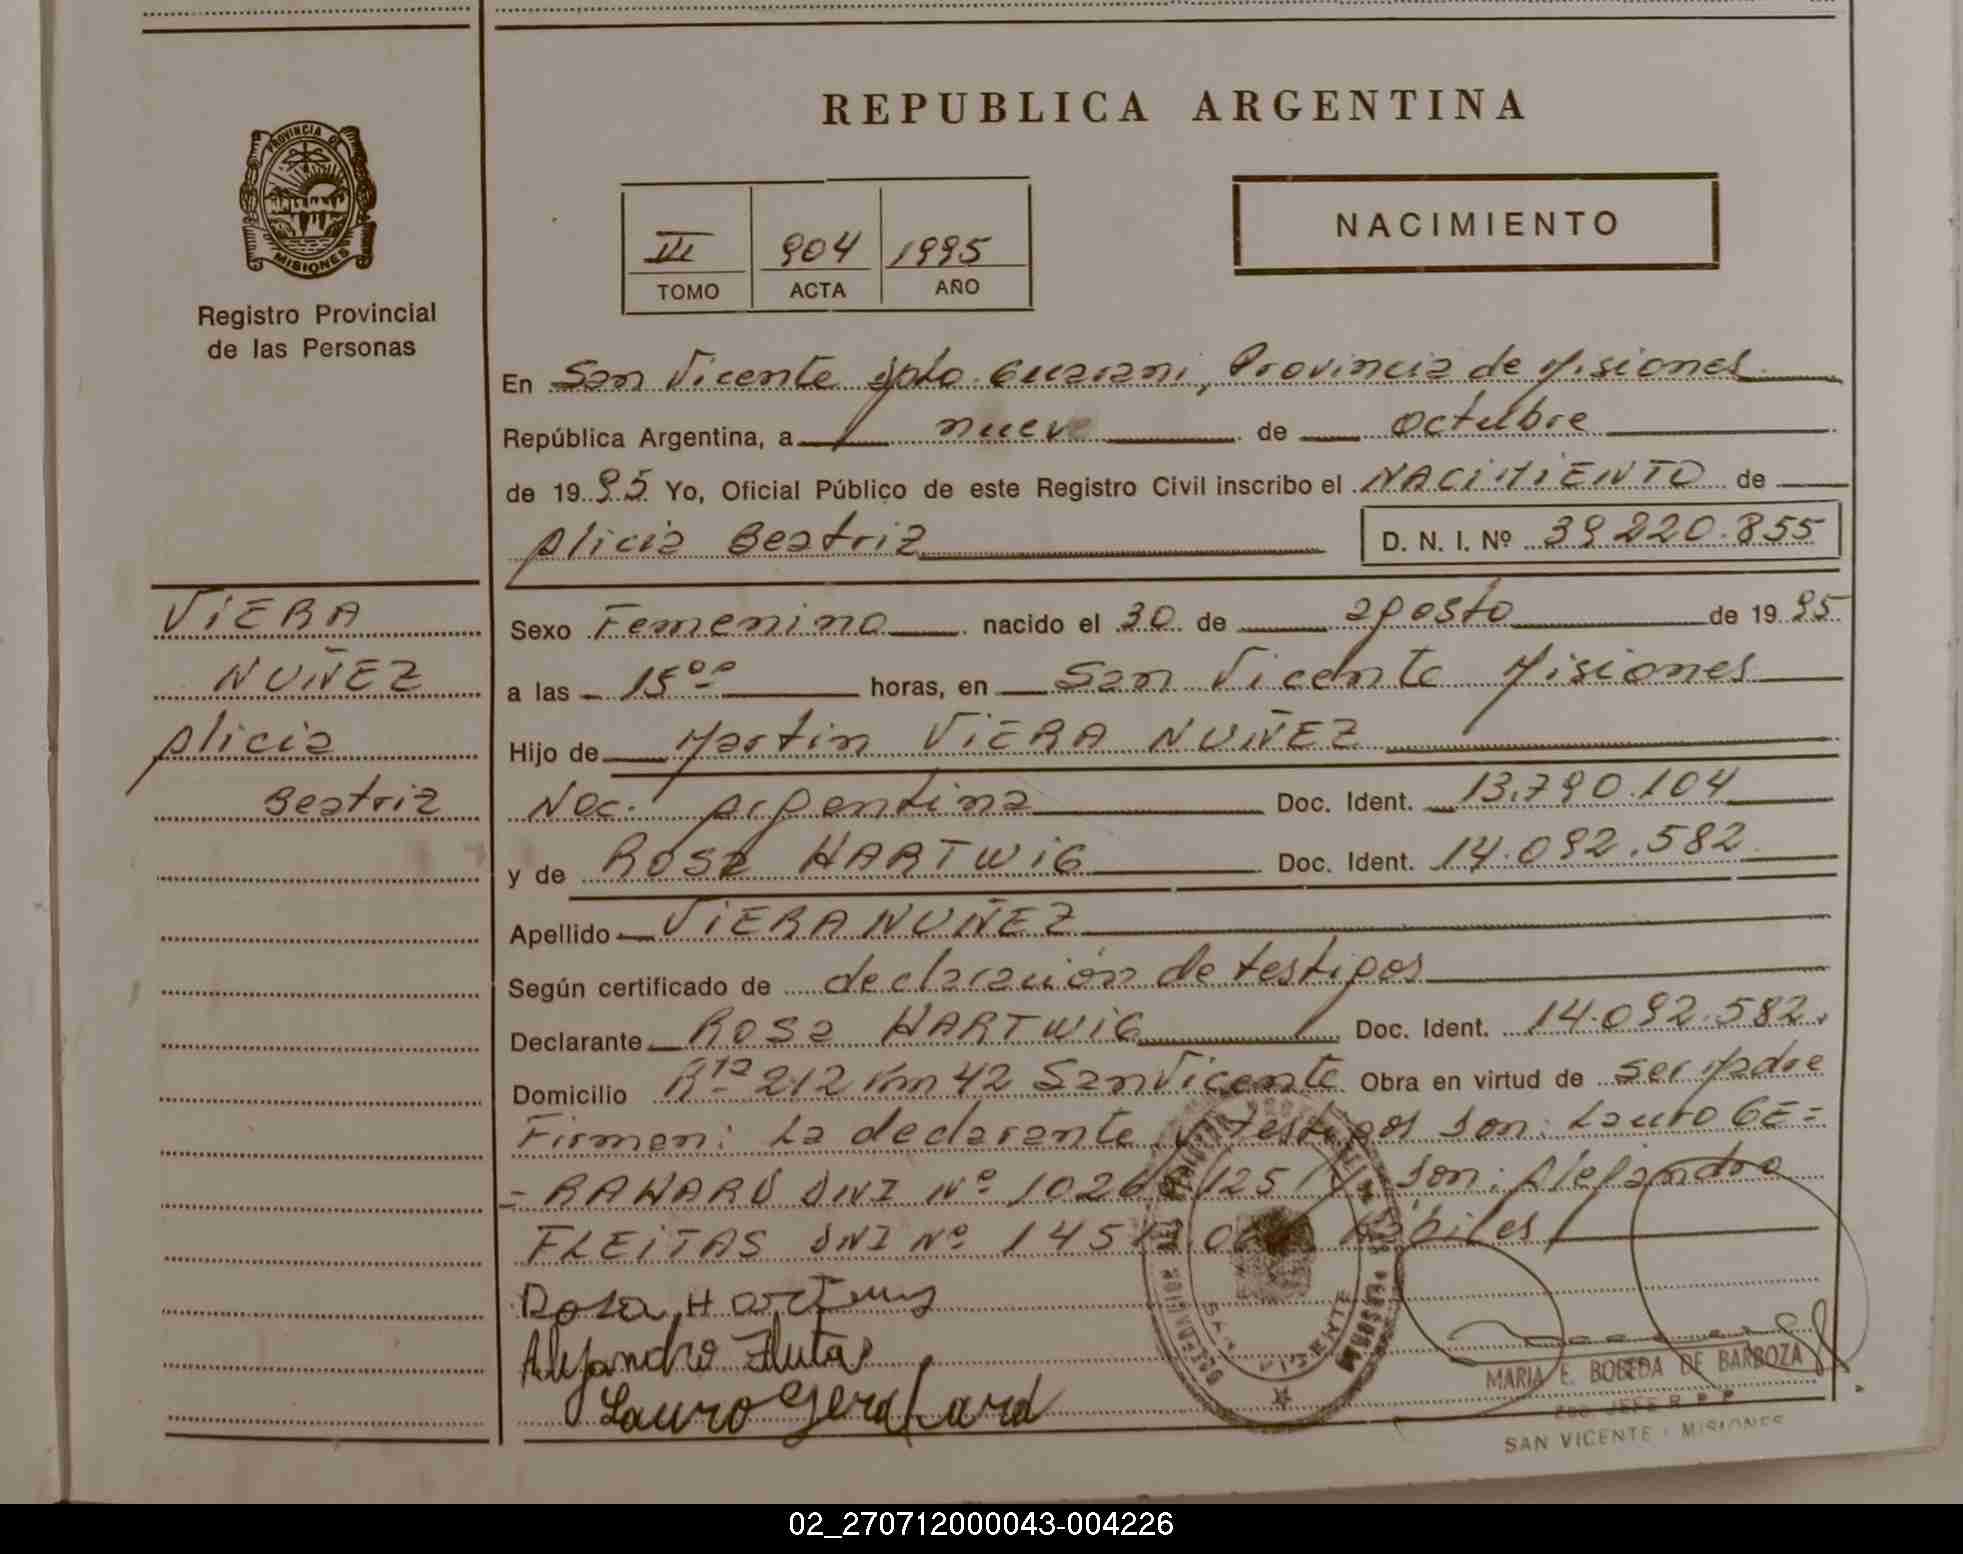 REPUBLICA ARGENTINA
PROVINCIA DE
MISIONES
Registro Provincial
de las Personas
III 904 1995
TOMO ACTA AÑO
NACIMIENTO
En San Vicente dpto. Guarani, Provincia de Misiones
República Argentina, a nueve de octubre
de 1995 Yo, Oficial Público de este Registro Civil inscribo el NACIMIENTO de
Alicia Beatriz D. N. I. Nº 39.220.855
VIERA
NUÑEZ
Alicia
Beatriz
Sexo Femenino nacido el 30 de agosto de 1995
a las 15°° horas, en San Vicente Misiones
Hijo de Martin VIERA NUÑEZ
Nac. Argentina Doc. Ident. 13.790.104
y de Rosa HARTWIG Doc. Ident. 14.092.582
Apellido VIERA NUÑEZ
Según certificado de declaración de testigos
Declarante Rosa HARTWIG Doc. Ident. 14.092.582.
Domicilio Rta 212 Km 42 San Vicente Obra en virtud de ser Madre
Firman: La declarante y testigos son: Lauro GE=
=RAHARD DNI Nº son: Alejandro
FLEITAS DNI Nº hábiles
Rosa Hartwig
Alejandro Fleitas
Lauro Gerahard
SAN VICENTE
MARIA E. BOBEDA DE BARBOZA
JEFE R.P.P.
SAN VICENTE - MISIONES
02_270712000043-004226